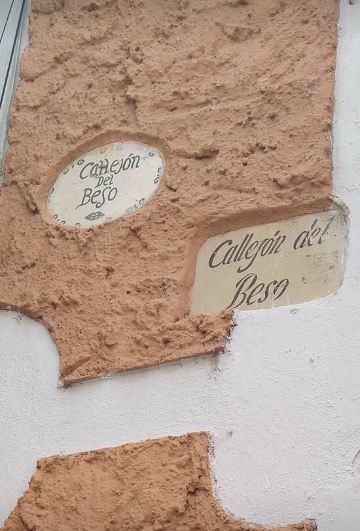 Callejón
Del
Beso
Callejón del
Beso